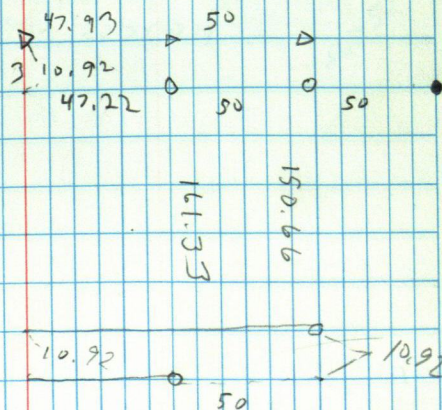 47.93 50
3 10.92
47.22 50 50
161.33 150.66
10.92 10.92
50